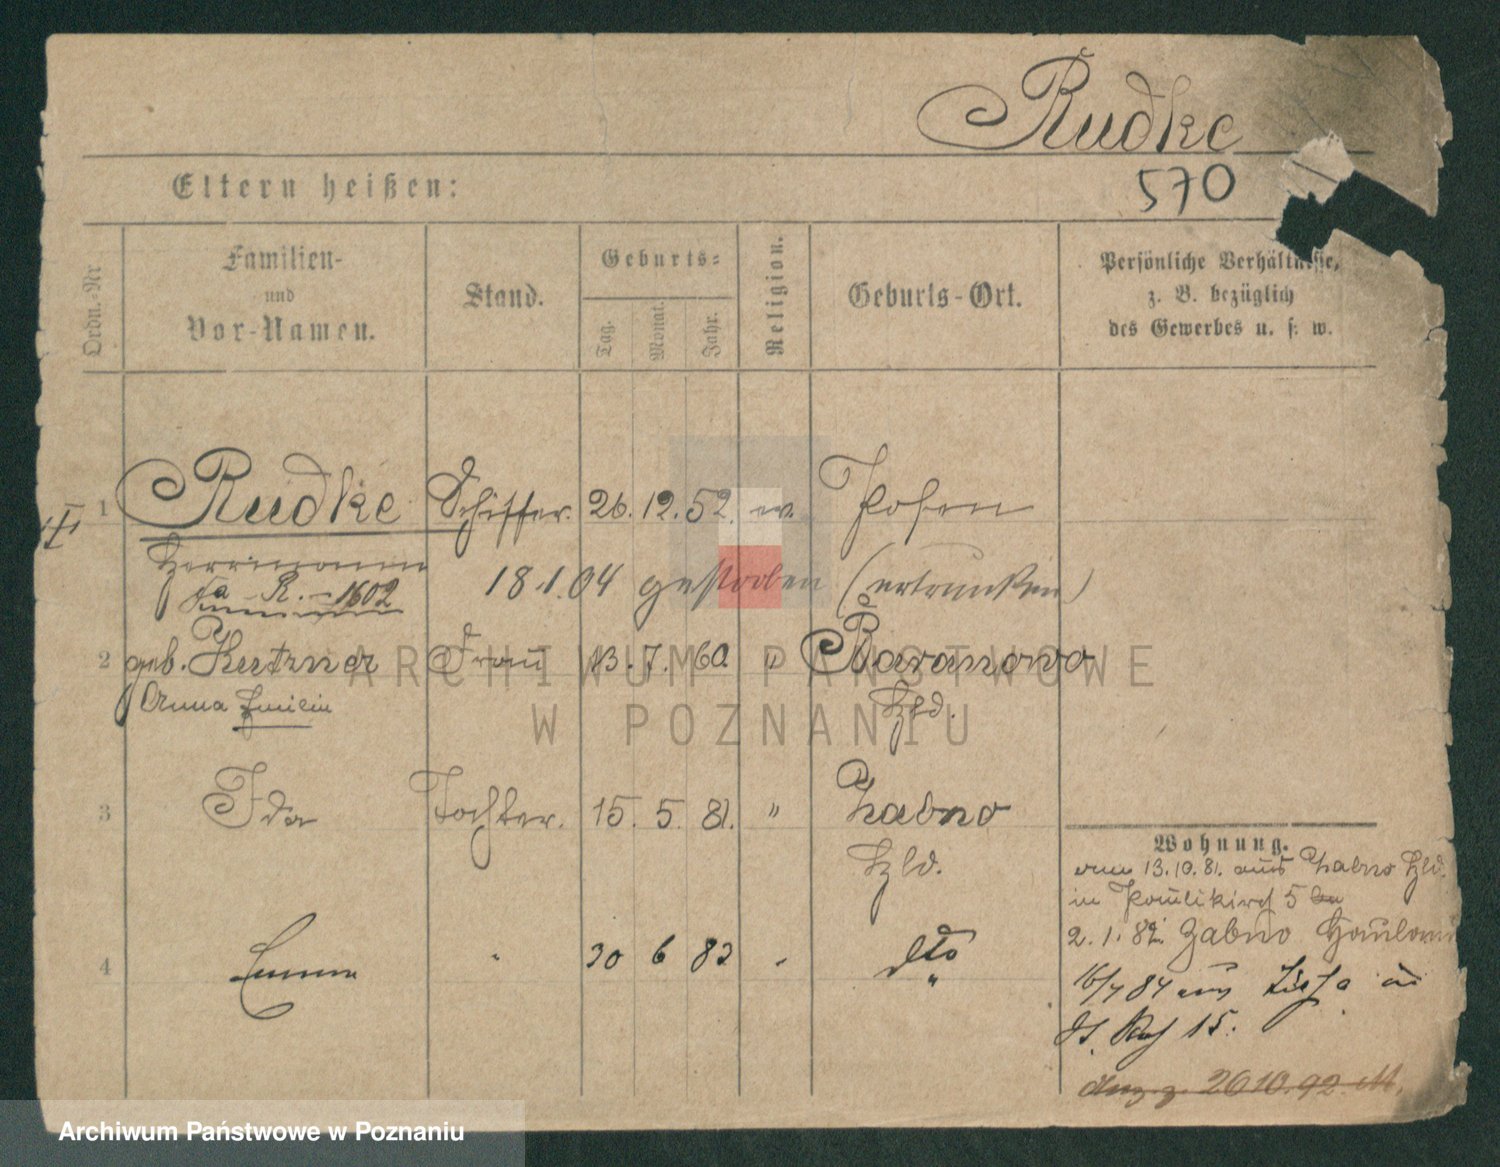 Rudke
570
Eltern heißen:
Ordn.-Nr
Familien-
und
Vor-Namen.
Stand.
Geburts-
Tag.
Monat.
Jahr.
Religion.
Geburts-Ort.
Persönliche Verhältnisse,
z. B. bezüglich
des Gewerbes u. s. w.
1 Rudke Schiffer. 26. 12. 52. ev. Posen
Herrmann
R. - 1602
18.1.04 gestorben (ertrunken)
2 geb. Kutzner Frau 13. 7. 60 " Baranowo
Anna Emilie
3 Ida Tochter. 15. 5. 81. " Zabno
4 Emma " 30 6 83 " dto
Wohnung.
13.10.81. aus Zabno
in Paulikirch 5
2. 1. Zabno
16/4 84 aus
15.
26 10. 92.
ARCHIWUM PAŃSTWOWE
W POZNANIU
Archiwum Państwowe w Poznaniu